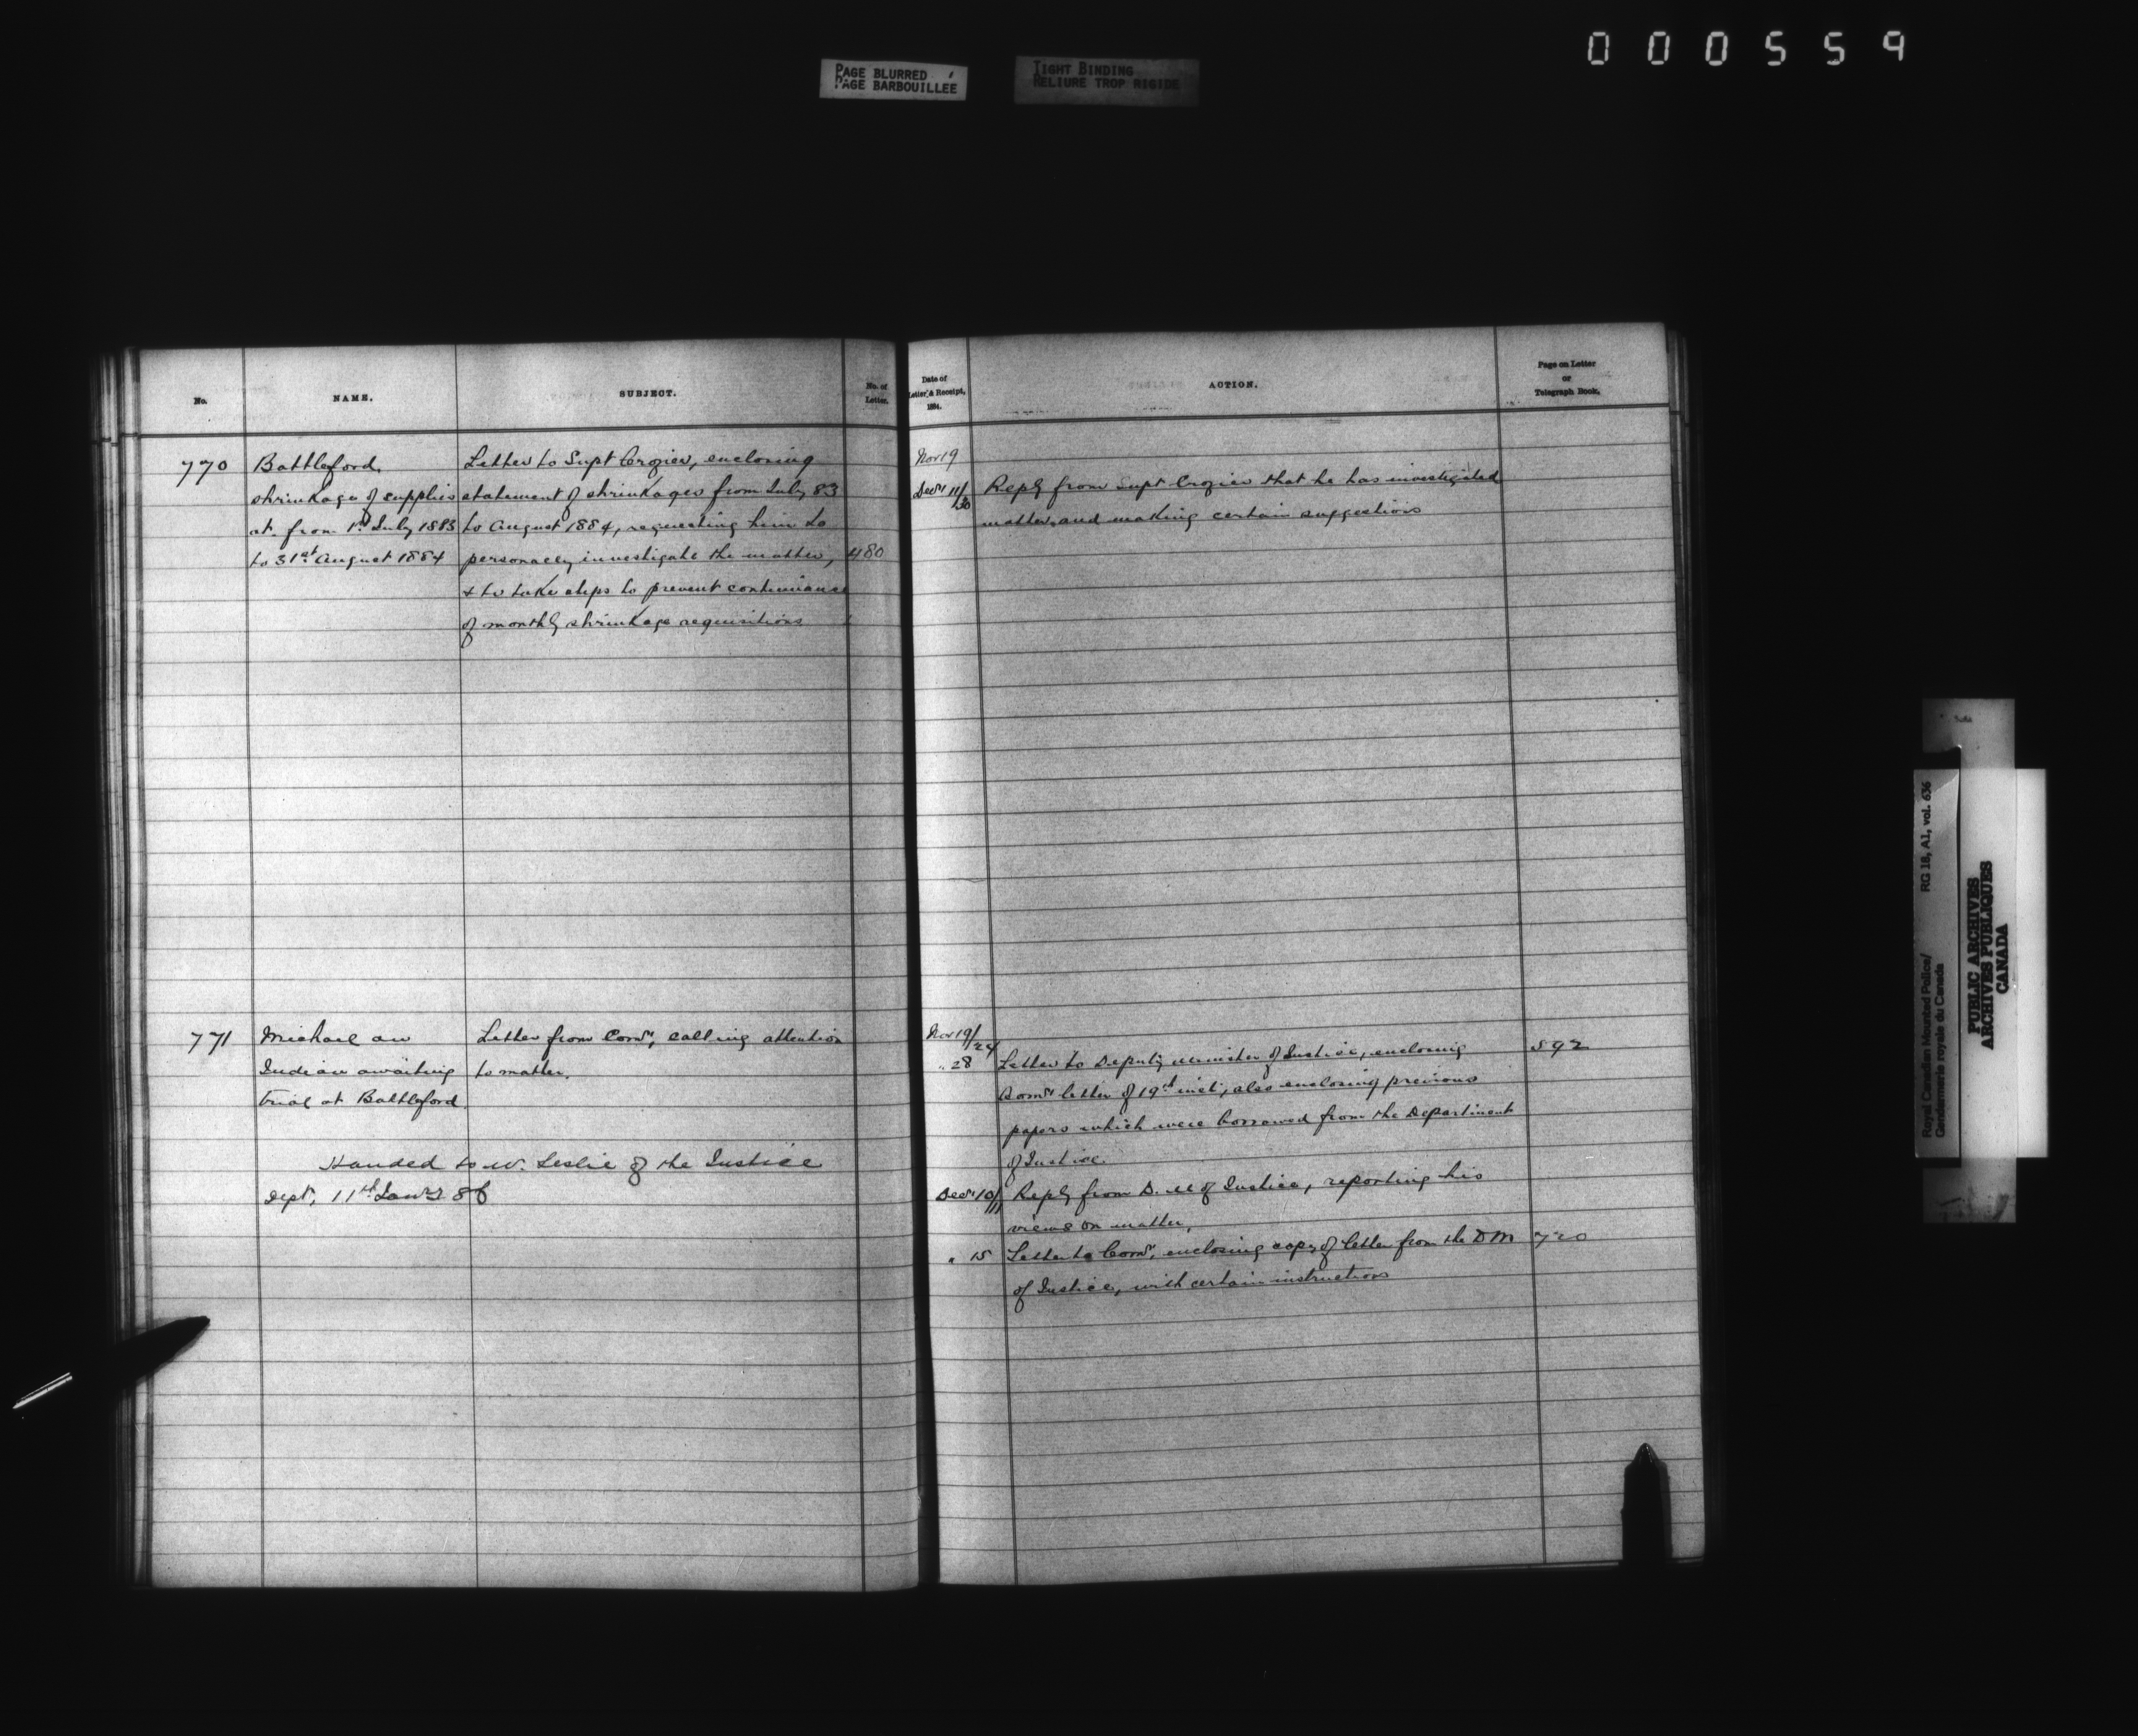 000559
PAGE BLURRED
PAGE BARBOUILLÉE
TIGHT BINDING
RELIURE TROP RIGIDE
No.
NAME.
SUBJECT.
No. of
Letter.
770
Battleford.
shrinkage of supplies
at from 1st July 1883
to 31st August 1884
Letter to Supt Crozier, enclosing
statement of shrinkages from July 83
to August 1884, requesting him to
personally investigate the matter,
& to take steps to prevent continuance
of monthly shrinkage requisitions
480
771
Michael an
Indian awaiting
trial at Battleford.
Letter from Comr, calling attention
to matter.
Handed to W. Leslie of the Justice
Dept, 11th Jany 86
Date of
Letter & Receipt,
1884.
ACTION.
Page on Letter
or
Telegraph Book.
Nov 19
Decr 11/30
Reply from Supt Crozier that he has investigated
matter, and making certain suggestions
Nov 19/24
" 28
Letter to Deputy Minister of Justice, enclosing
592
Comr letter of 19th inst, also enclosing previous
papers which were borrowed from the Department
of Justice.
Decr 10/11
Reply from D. M of Justice, reporting his
views on matter.
" 15
Letter to Comr, enclosing copy of letter from the DM
720
of Justice, with certain instructions
RG 18, A1, vol. 636
Royal Canadian Mounted Police/
Gendarmerie royale du Canada
PUBLIC ARCHIVES
ARCHIVES PUBLIQUES
CANADA